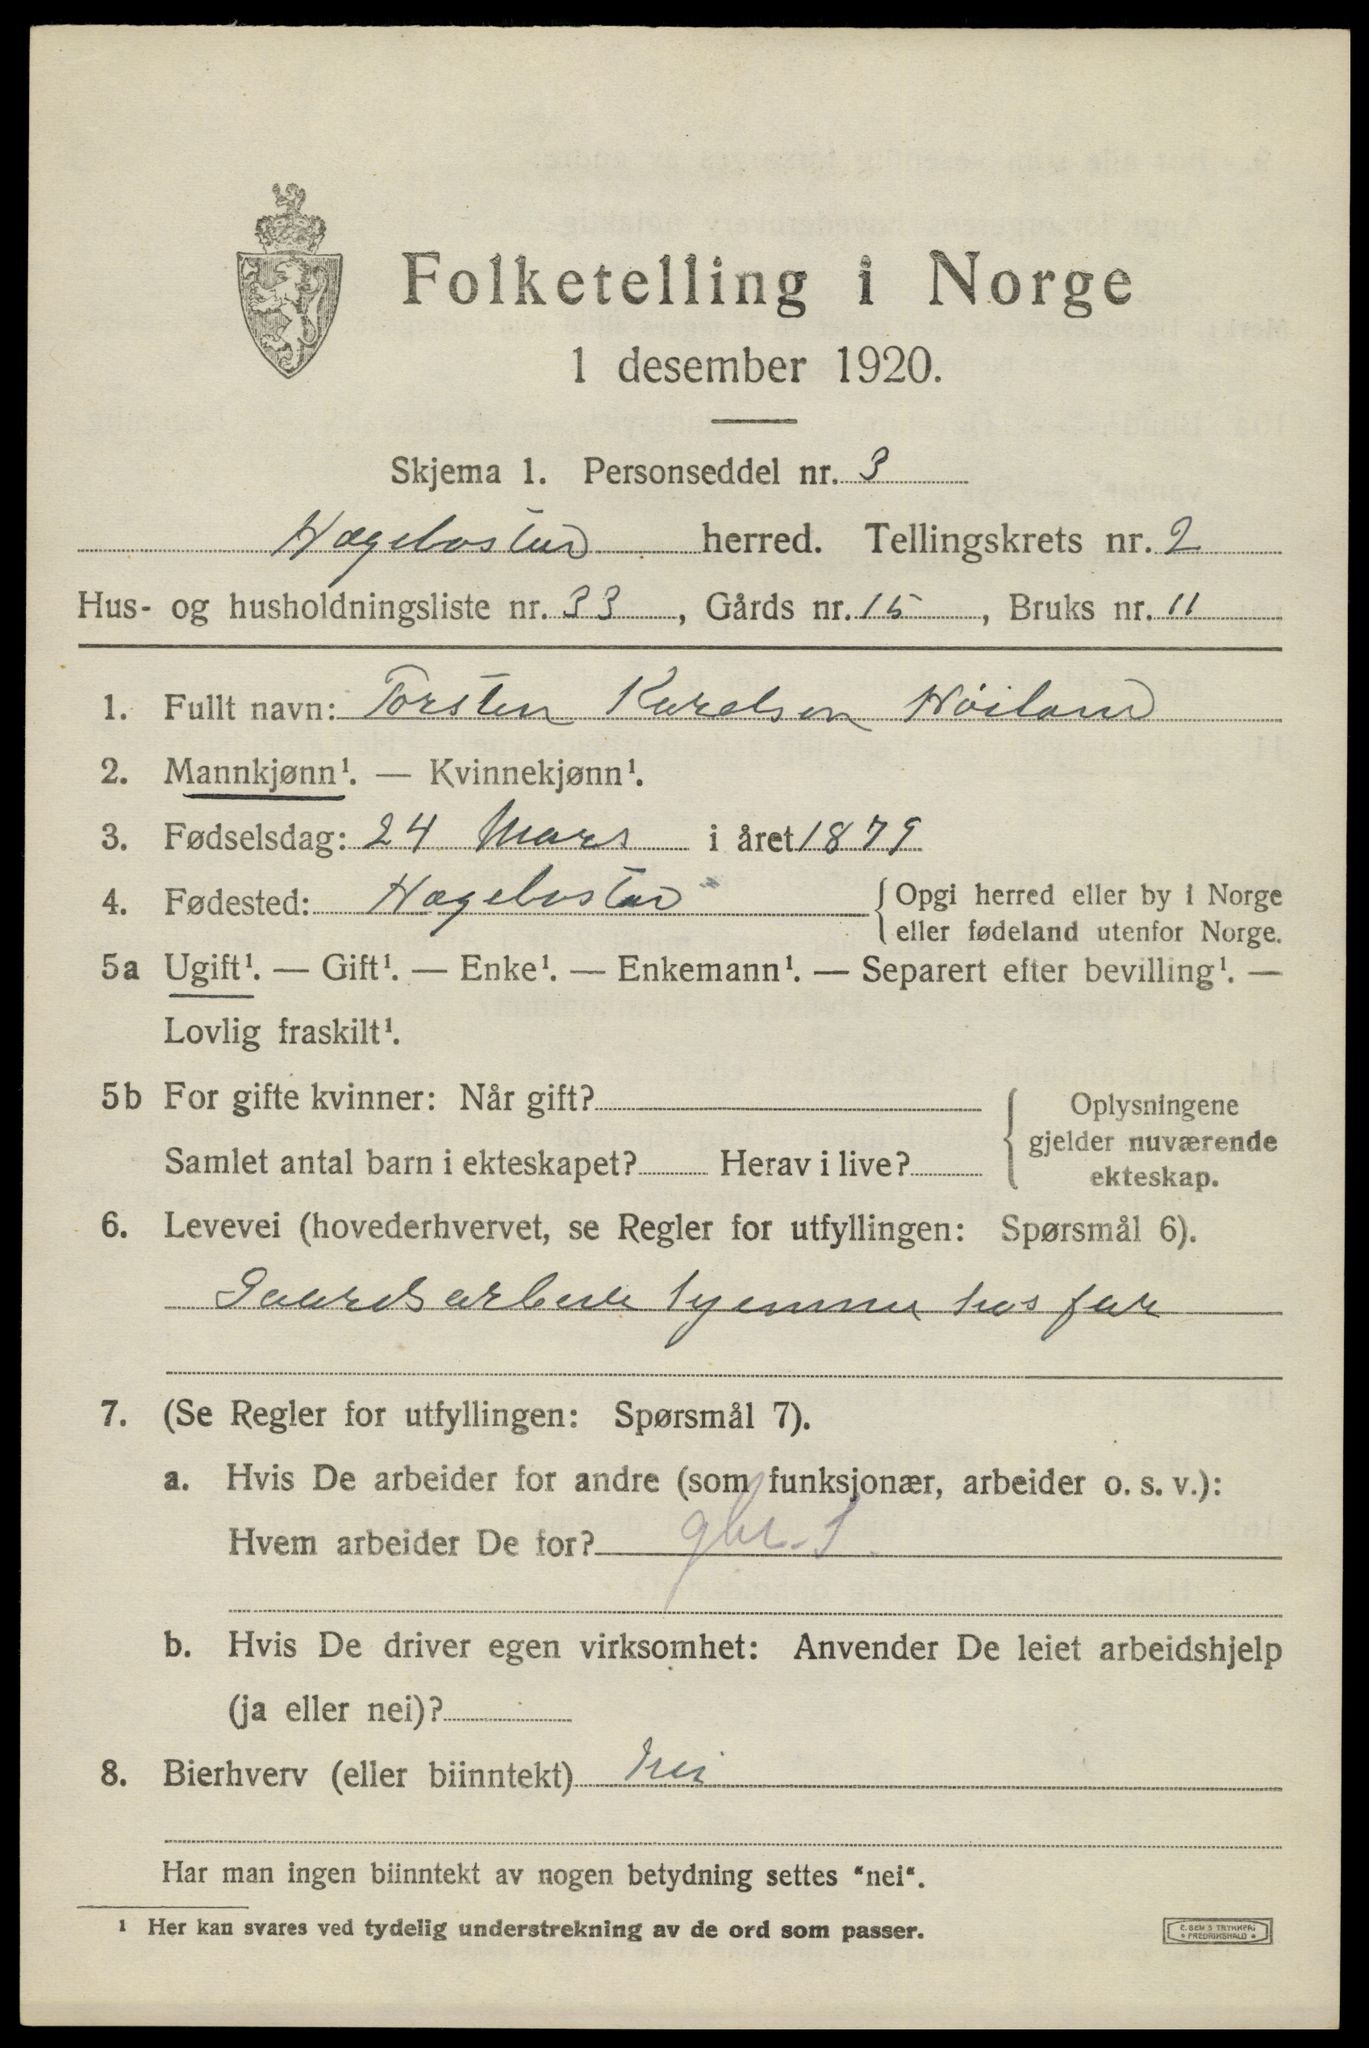 Folketelling i Norge
1 desember 1920.
Skjema 1. Personseddel nr. 3
Hægebostad herred. Tellingskrets nr. 2
Hus- og husholdningsliste nr. 33, Gårds nr. 15, Bruks nr. 11
1. Fullt navn: Torsten Karelsen Höiland
2. Mannkjønn¹. — Kvinnekjønn¹.
3. Fødselsdag: 24 Mars i året 1879
4. Fødested: Hægebostad {Opgi herred eller by i Norge
eller fødeland utenfor Norge.
5a Ugift¹. — Gift¹. — Enke¹. — Enkemann¹. — Separert efter bevilling¹. —
Lovlig fraskilt¹.
5b For gifte kvinner: Når gift? { Oplysningene
gjelder nuværende
Samlet antal barn i ekteskapet? Herav i live?
ekteskap.
6. Levevei (hovederhvervet, se Regler for utfyllingen: Spørsmål 6).
Gaardsarbeide hjemme hos far
7. (Se Regler for utfyllingen: Spørsmål 7).
a. Hvis De arbeider for andre (som funksjonær, arbeider o. s. v.):
Hvem arbeider De for? gbr. S.
b. Hvis De driver egen virksomhet: Anvender De leiet arbeidshjelp
(ja eller nei)?
8. Bierhverv (eller biinntekt) Nei
Har man ingen biinntekt av nogen betydning settes "nei".
¹ Her kan svares ved tydelig understrekning av de ord som passer.
E. SEM'S TRYKKERI
FREDRIKSHALD